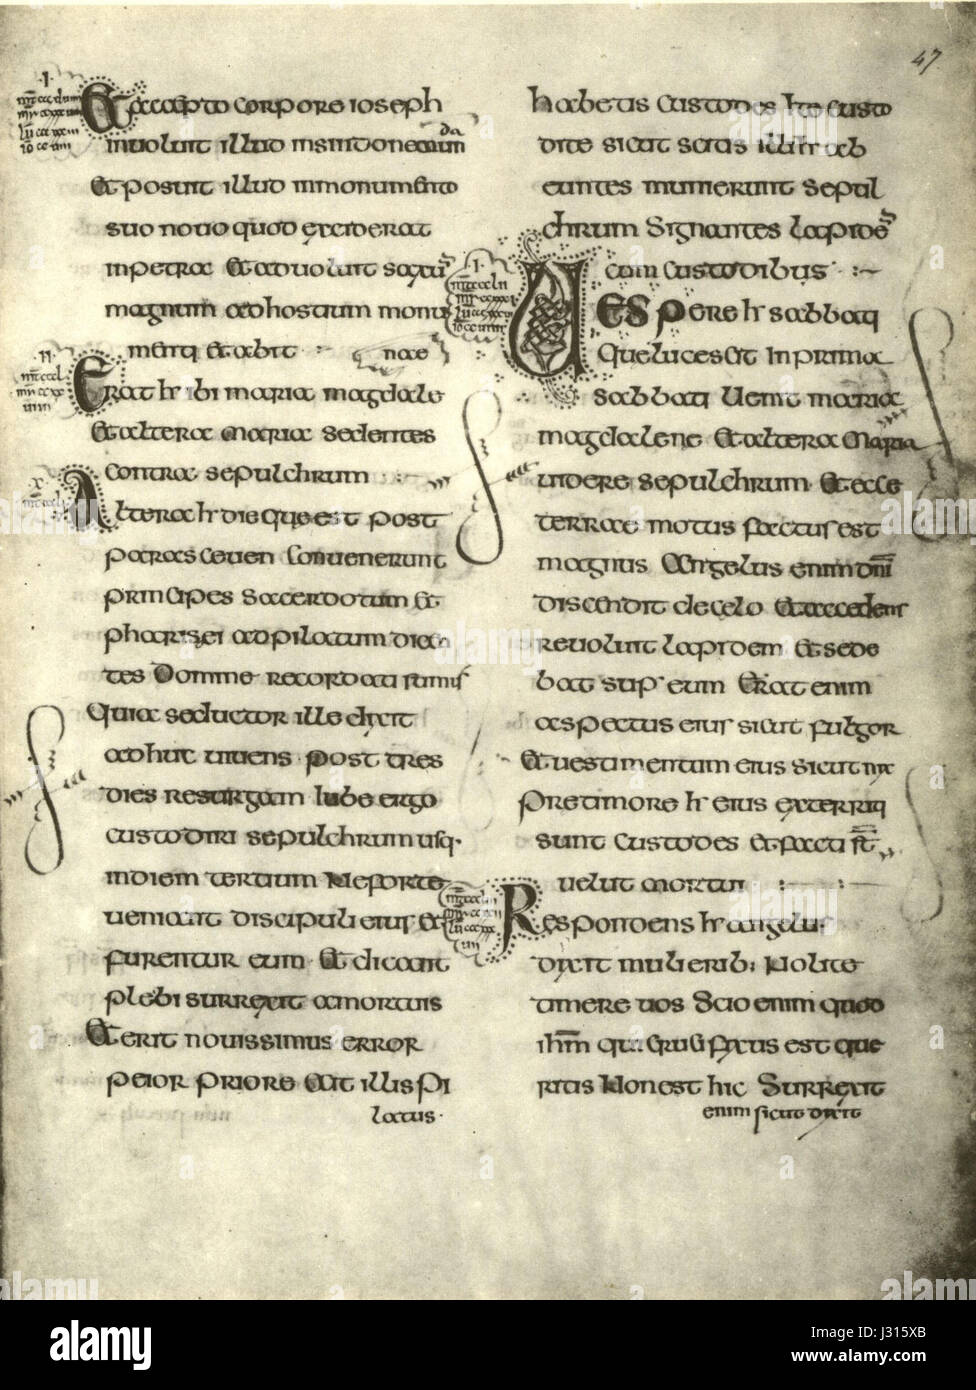 47
Et accepto corpore ioseph
inuoluit illud insindone mun
da
et posuit illud inmonumento
suo nouo quod exciderat
inpetra et aduoluit saxū
magnum adhostium monu
menti et abit
nae
Erat hr ibi maria magdale
et altera maria sedentes
contra sepulchrum
Altera hr die que est post
parasceuen conuenerunt
principes sacerdotum et
pharisei adpilatum dicen
tes Domine recordati sumus
quia seductor ille dixit
adhuc uiuens post tres
dies resurgam iube ergo
custodiri sepulchrum usq·
indiem tertium Neforte
ueniant discipuli eius et
furentur eum et dicant
plebi surrexit amortuis
et erit nouissimus error
peior priore ait illis pi
latus·
habetis custodes ite custo
dite sicut scitis illi hr ab
euntes munierunt sepul
chrum signantes lapidē
cum custodibus
Uespere hr sabbati
que lucescit inprima
sabbati uenit maria
magdalene et altera maria
uidere sepulchrum et ecce
terrae motus factus est
magnus angelus enim dn̄i
discendit de celo et accedens
reuoluit lapidem et sede
bat sup eum Erat enim
aspectus eius sicut fulgor
et uestimentum eius sicut nix
Pretimore hr eius exterriti
sunt custodes et facti sт̄
uelut mortui
Respondens hr angelus
dixit mulierib· Nolite
timere uos Scio enim quod
ihm̄ qui crucifixus est que
ritis Nonest hic Surrexit
enim sicut dixit
alamy
Image ID: J315XB
www.alamy.com